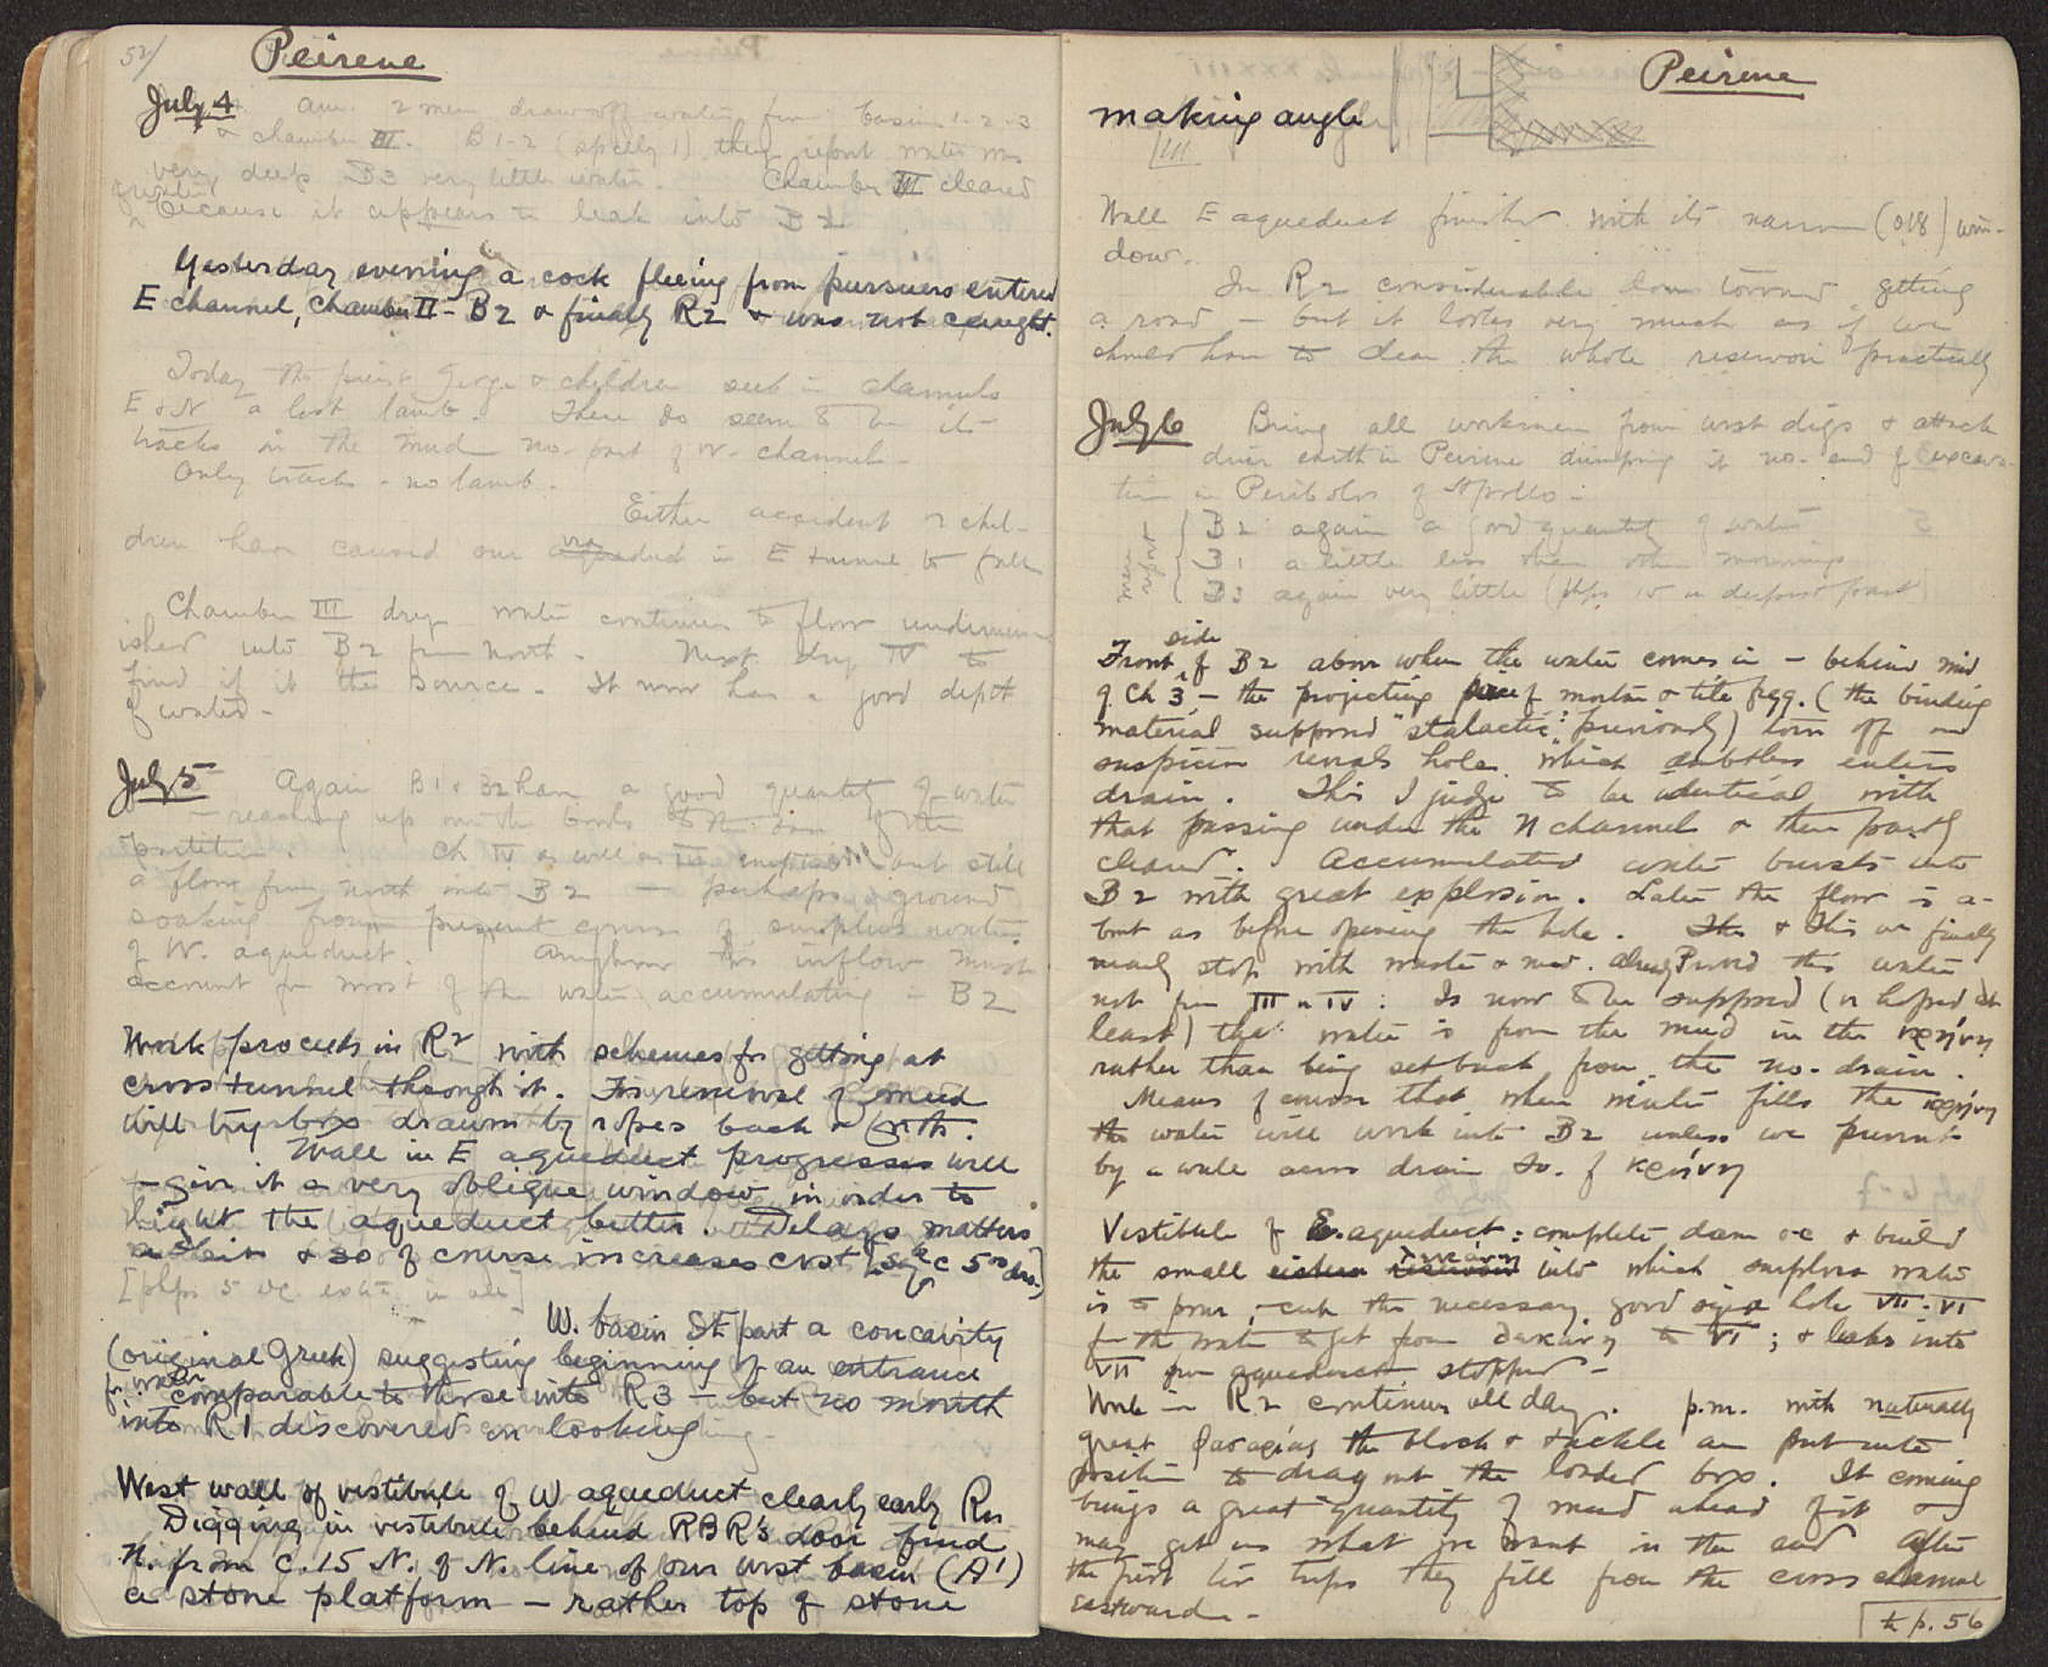 52/
Peirene
July 4 am. 2 men draw off water from basins 1-2-3
& chamber III. B 1-2 (specially 1) they report water was
very deep B3 very little water. Chamber III cleared
because it appears to leak into B2
Yesterday evening a cock fleeing from pursuers entered
E channel, Chamber II - B2 & finally R2 & was not caught.
Today the priest & children seek in channels
E & N a lost lamb. There do seem to be its
tracks in the mud no. part of N. channel-
Only tracks - no lamb.
Either accident or chil-
dren have caused our in E tunnel to fall
Chamber III dry water continues to flow undimin-
ished into B2 from north. Next dry IV to
find if it is the source. It now has a good depth
of water-
July 5 Again B1 & B2 have a good quantity of water
- reaching up over the to the of the
partition. Ch IV as well as III emptied but still
a flow from north into B2 - perhaps a ground
soaking from present course of surplus water
of W. aqueduct. Anyhow this inflow must
account for most of the water accumulating in B2
Work proceeds in R2 with schemes for getting at
cross tunnel through it. For removal of mud
will try box drawn by ropes back & forth.
Wall in E aqueduct progresses will
- give it a very oblique window in order to
light the aqueduct better. Delays matters
a bit & so of course increases cost [say c 5 drs.]
[phps 5 extra in all]
W. basin St part a concavity
(original Greek) suggesting beginning of an entrance
for water comparable to those into R3 - but no mouth
into R1 discovered on looking
West wall of vestibule of W aqueduct clearly early Rn
Digging in vestibule behind RBR's door find
N. from c. 15 N. of N. line of our west basin (A')
a stone platform - rather top of stone
Peirene
making angle
III
Wall E aqueduct finished with its narrow (018) win-
dow.
In R2 considerable done toward getting
a road - but it looks very much as if we
should have to clear the whole reservoir practically
July 6 Bring all workmen from west digs & attack
earth in Peirene dumping it no. end of excava-
tion in Peribolos of Apollo -
men report
B2 again a good quantity of water
B1 a little less than other mornings
B3 again very little (phps 15 in deepest part)
Front side of B2 above where the water comes in - behind mid
of Ch 3, - the projecting piece of mortar & tile fragg. (the binding
material supposed "stalactic" previously) torn off on
suspicion reveals hole which doubtless enters
drain. This I judge to be identical with
that passing under the N channel & there partly
cleared. Accumulated water bursts into
B2 with great explosion. Later the flow is a-
bout as before opening the hole. The & This we finally
nearly stop with waste & mud. Already Proved this water
not from III or IV: Is now to be supposed (or hoped at
least) that water is from the mud in the κρήνη
rather than being set back from the no. drain.
Means of course that when water fills the κρήνη
the water will work into B2 unless we prevent
by a wall across drain So. of κρήνη
Vestibule of E. aqueduct: complete dam & build
the small cistern reservoir δεκάνη into which surplus water
is to pour, - cut the necessary good sized hole VII-VI
for the water to get from δεκάνη to VI; & leaks into
VII from aqueduct stopped -
Work in R2 continues all day. p.m. with naturally
great φασαρίας the block & tackle are put into
position to drag out the loaded box. It coming
brings a great quantity of mud ahead of it &
may get us what we want in the end After
the first few trips they fill from the cross channel
eastwards -
to p. 56